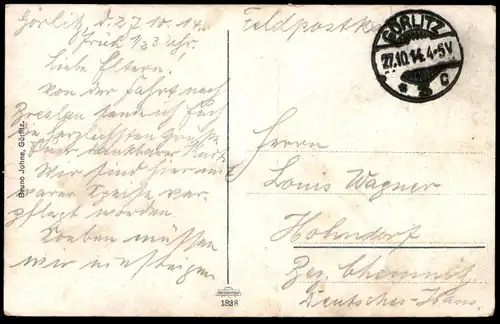 Görlitz, d. 27.10.14.
Früh 1/2 3 Uhr.
Liebe Eltern!
Von der Fahrt nach
Breslau sende ich Euch
die herzlichsten Grüße
Euer dankbarer Kurt
Wir sind hier mit
warer Speise ver-
pflegt worden.
Soeben müssen
wir einsteigen.
Bruno Johne, Görlitz.
1828
Feldpostkarte
GÖRLITZ
27.10.14.4-5V
* 2b c
Herrn
Louis Wagner
Hohndorf
Bez. Chemnitz
Deutsches Haus.